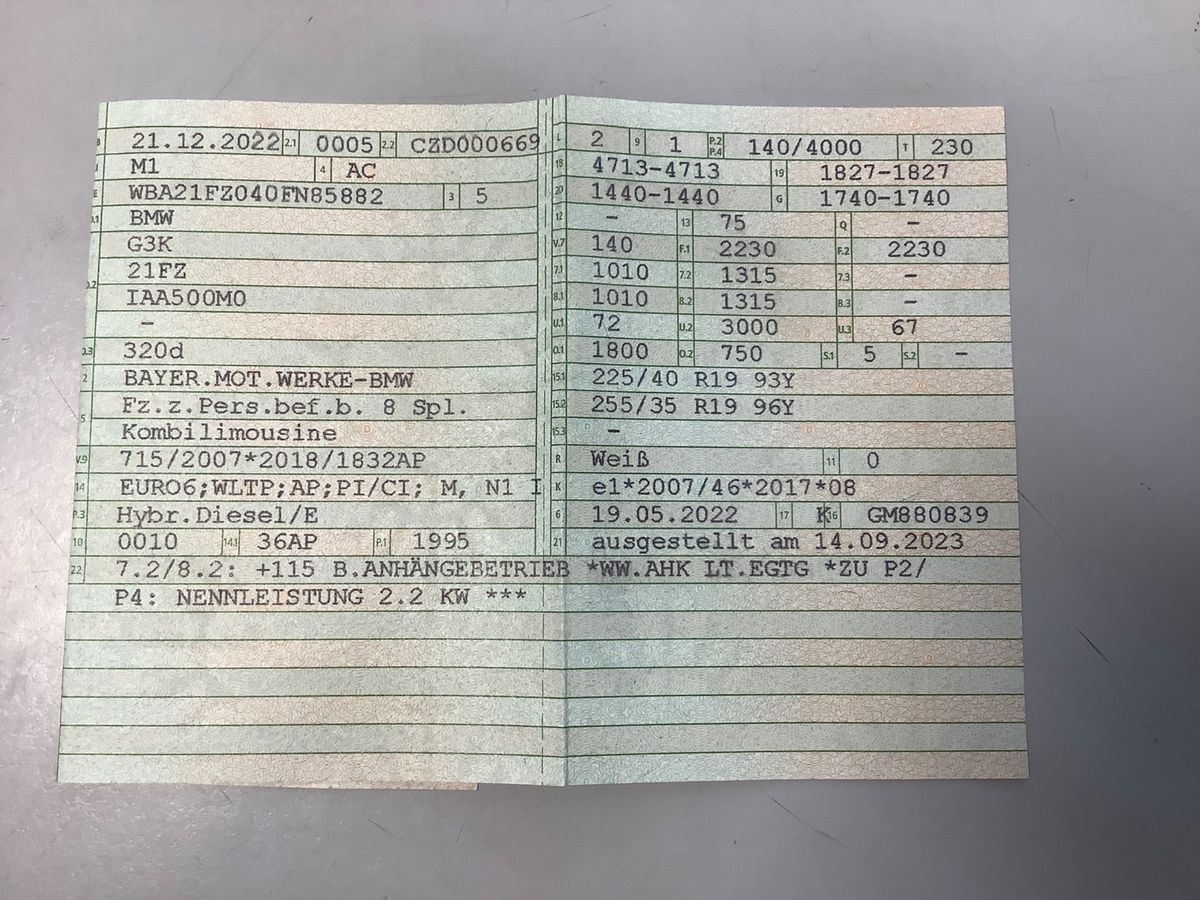 B 21.12.2022 2.1 0005 2.2 CZD000669
J M1 4 AC
E WBA21FZ040FN85882 3 5
D.1 BMW
G3K
D.2 21FZ
IAA500M0
–
D.3 320d
2 BAYER.MOT.WERKE-BMW
5 Fz.z.Pers.bef.b. 8 Spl.
Kombilimousine
V.9 715/2007*2018/1832AP
14 EURO6;WLTP;AP;PI/CI; M, N1 I
P.3 Hybr.Diesel/E
10 0010 14.1 36AP P.1 1995
L 2 9 1 P.2 P.4 140/4000 T 230
18 4713-4713 19 1827-1827
20 1440-1440 G 1740-1740
12 – 13 75 Q –
V.7 140 F.1 2230 F.2 2230
7.1 1010 7.2 1315 7.3 –
8.1 1010 8.2 1315 8.3 –
U.1 72 U.2 3000 U.3 67
O.1 1800 O.2 750 S.1 5 S.2 –
15.1 225/40 R19 93Y
15.2 255/35 R19 96Y
15.3 –
R Weiß 11 0
K e1*2007/46*2017*08
6 19.05.2022 17 K 16 GM880839
21 ausgestellt am 14.09.2023
22 7.2/8.2: +115 B.ANHÄNGEBETRIEB *WW.AHK LT.EGTG *ZU P2/
P4: NENNLEISTUNG 2.2 KW ***